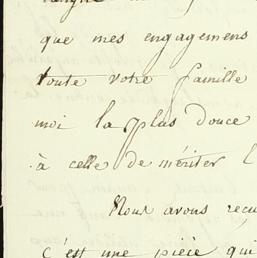 que mes engagemens
toute votre famille
moi la plus douce
à celle de mériter l
Nous avons reçu
c'est une pièce qui